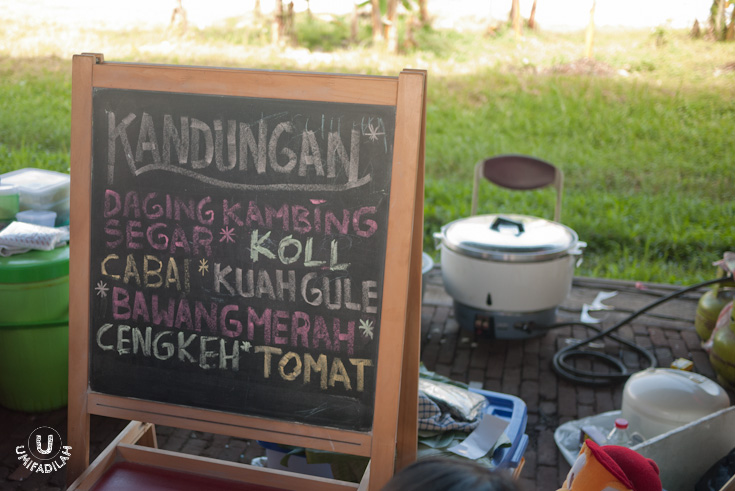 KANDUNGAN*
DAGING KAMBING
SEGAR * KOLL
CABAI * KUAH GULE
* BAWANG MERAH *
CENGKEH * TOMAT
U
UMIFADILAH